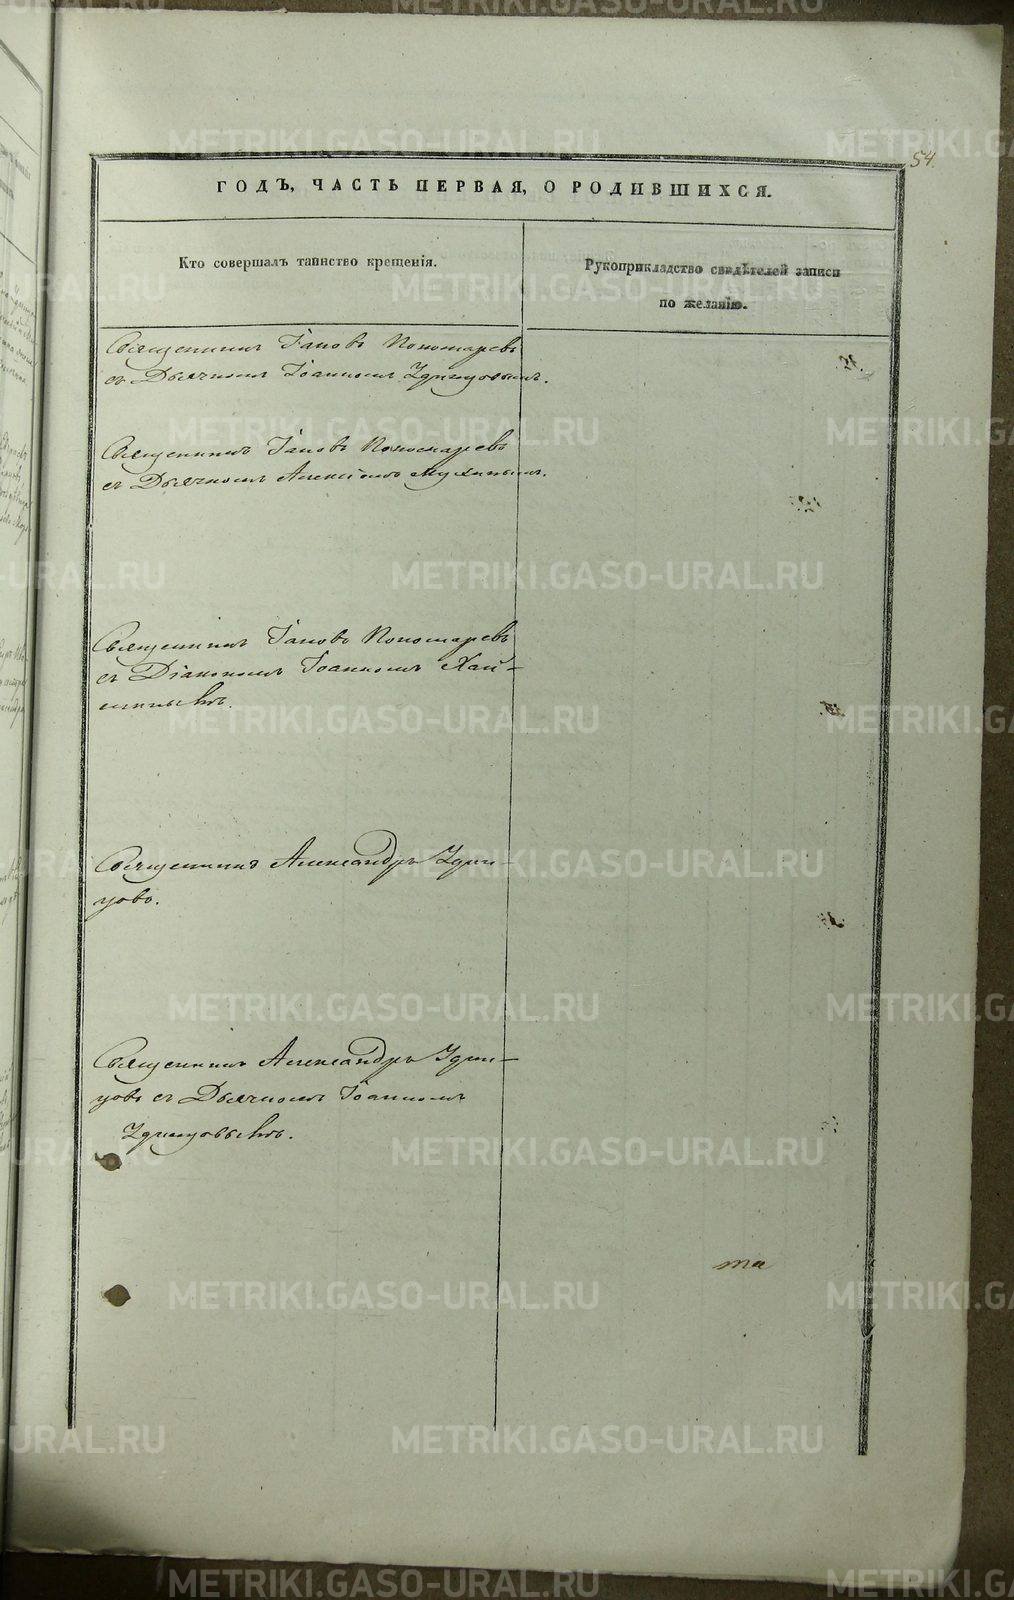 54.
ГОДЪ, ЧАСТЬ ПЕРВАЯ, О РОДИВШИХСЯ.
Кто совершалъ таинство крещенія.
Рукоприкладство свидѣтелей записи
по желанію.
Священникъ Іаковъ Пономаревъ
съ Дьячкомъ Іоанномъ Удинцовымъ.
Священникъ Іаковъ Пономаревъ
съ Дьячкомъ Алексіемъ Мухинымъ.
Священникъ Іаковъ Пономаревъ
съ Діакономъ Іоанномъ
Священникъ Александръ Удин-
цовъ.
Священникъ Александръ Удин-
цовъ съ Дьячкомъ Іоанномъ
Удинцовымъ.
та
METRIKI.GASO-URAL.RU